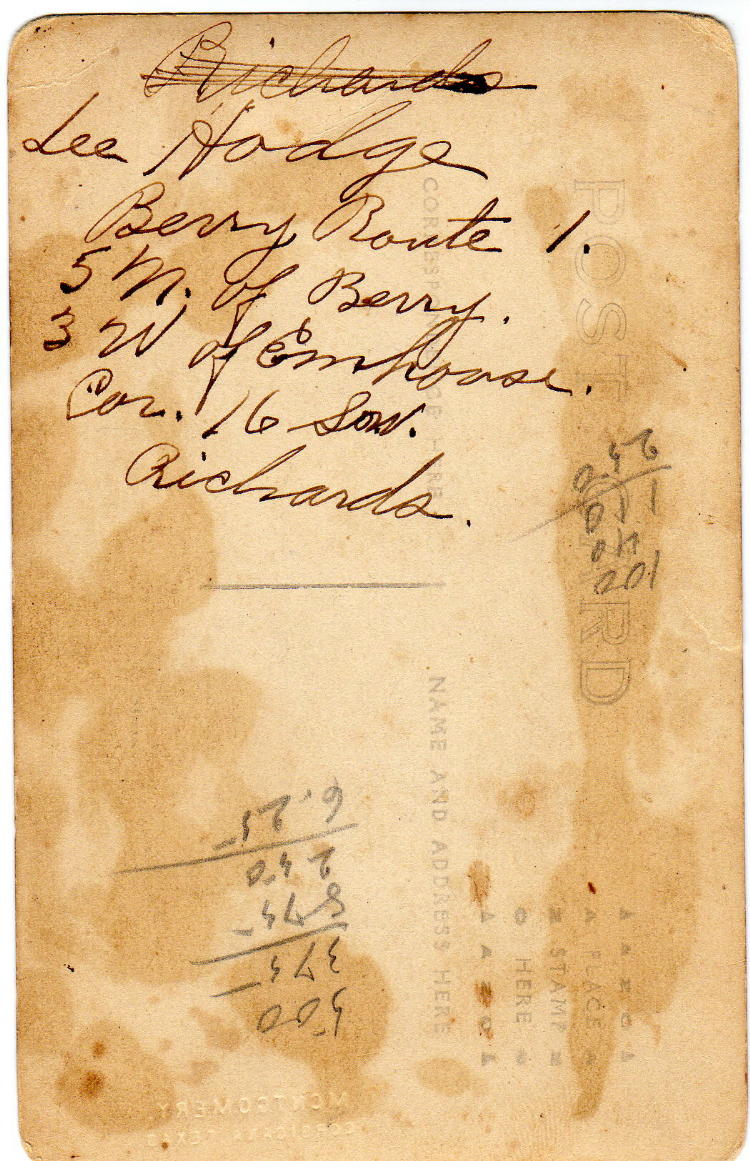 Richards
Lee Hodge
Berry Route 1.
5 N. of Berry.
3 W of Emhouse.
Cor. 16 Sow.
Richards.
POST CARD
CORRESPONDENCE HERE
NAME AND ADDRESS HERE
PLACE
STAMP
HERE
102
40
25
500
375
875
250
6.25
MONTGOMERY
CORSICANA TEXAS